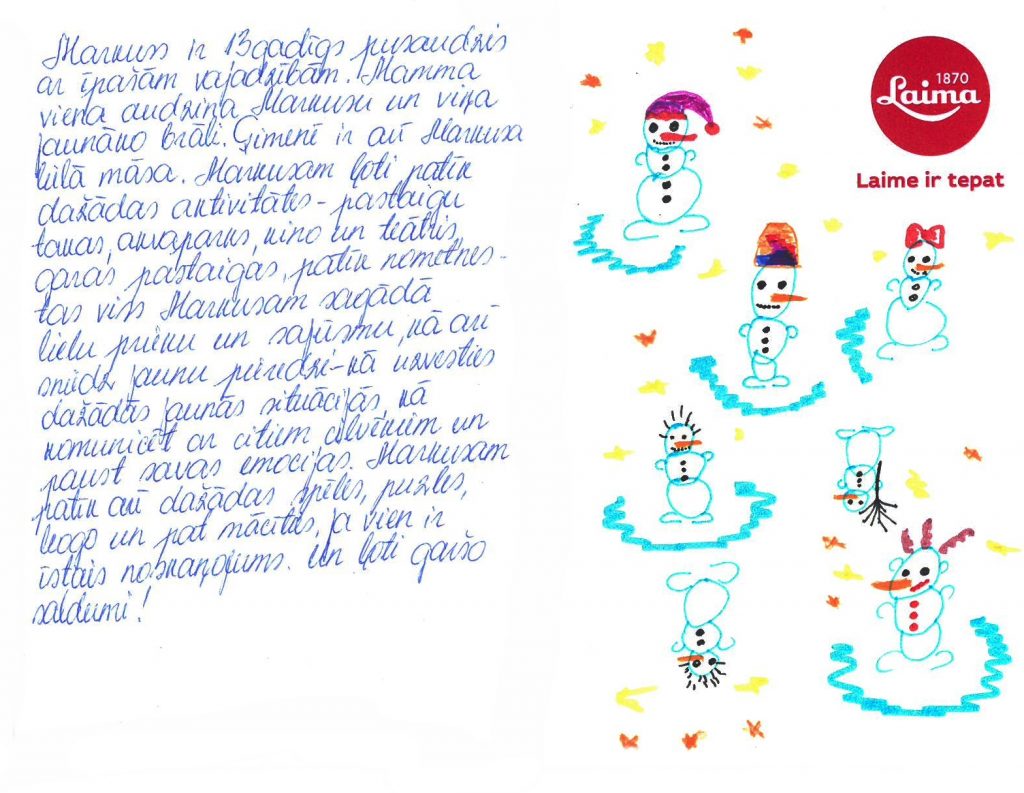 Markuss ir 13gadīgs pusaudzis
ar īpašām vajadzībām. Mamma
viena audzina Markusu un viņa
jaunāko brāli. Ģimenē ir arī Markusa
lielā māsa. Markusam ļoti patīk
dažādas aktivitātes - pastaigu
takas, akvaparks, kino un teātris,
garas pastaigas, patīk nometnes -
tas viss Markusam sagādā
lielu prieku un sajūsmu, kā arī
sniedz jaunu pieredzi - kā uzvesties
dažādās jaunās situācijās, kā
komunicēt ar citiem cilvēkiem un
paust savas emocijas. Markusam
patīk arī dažādas spēles, puzles,
lego un pat mācīties, ja vien ir
īstais noskaņojums. Un ļoti garšo
saldumi!
1870
Laima
Laime ir tepat